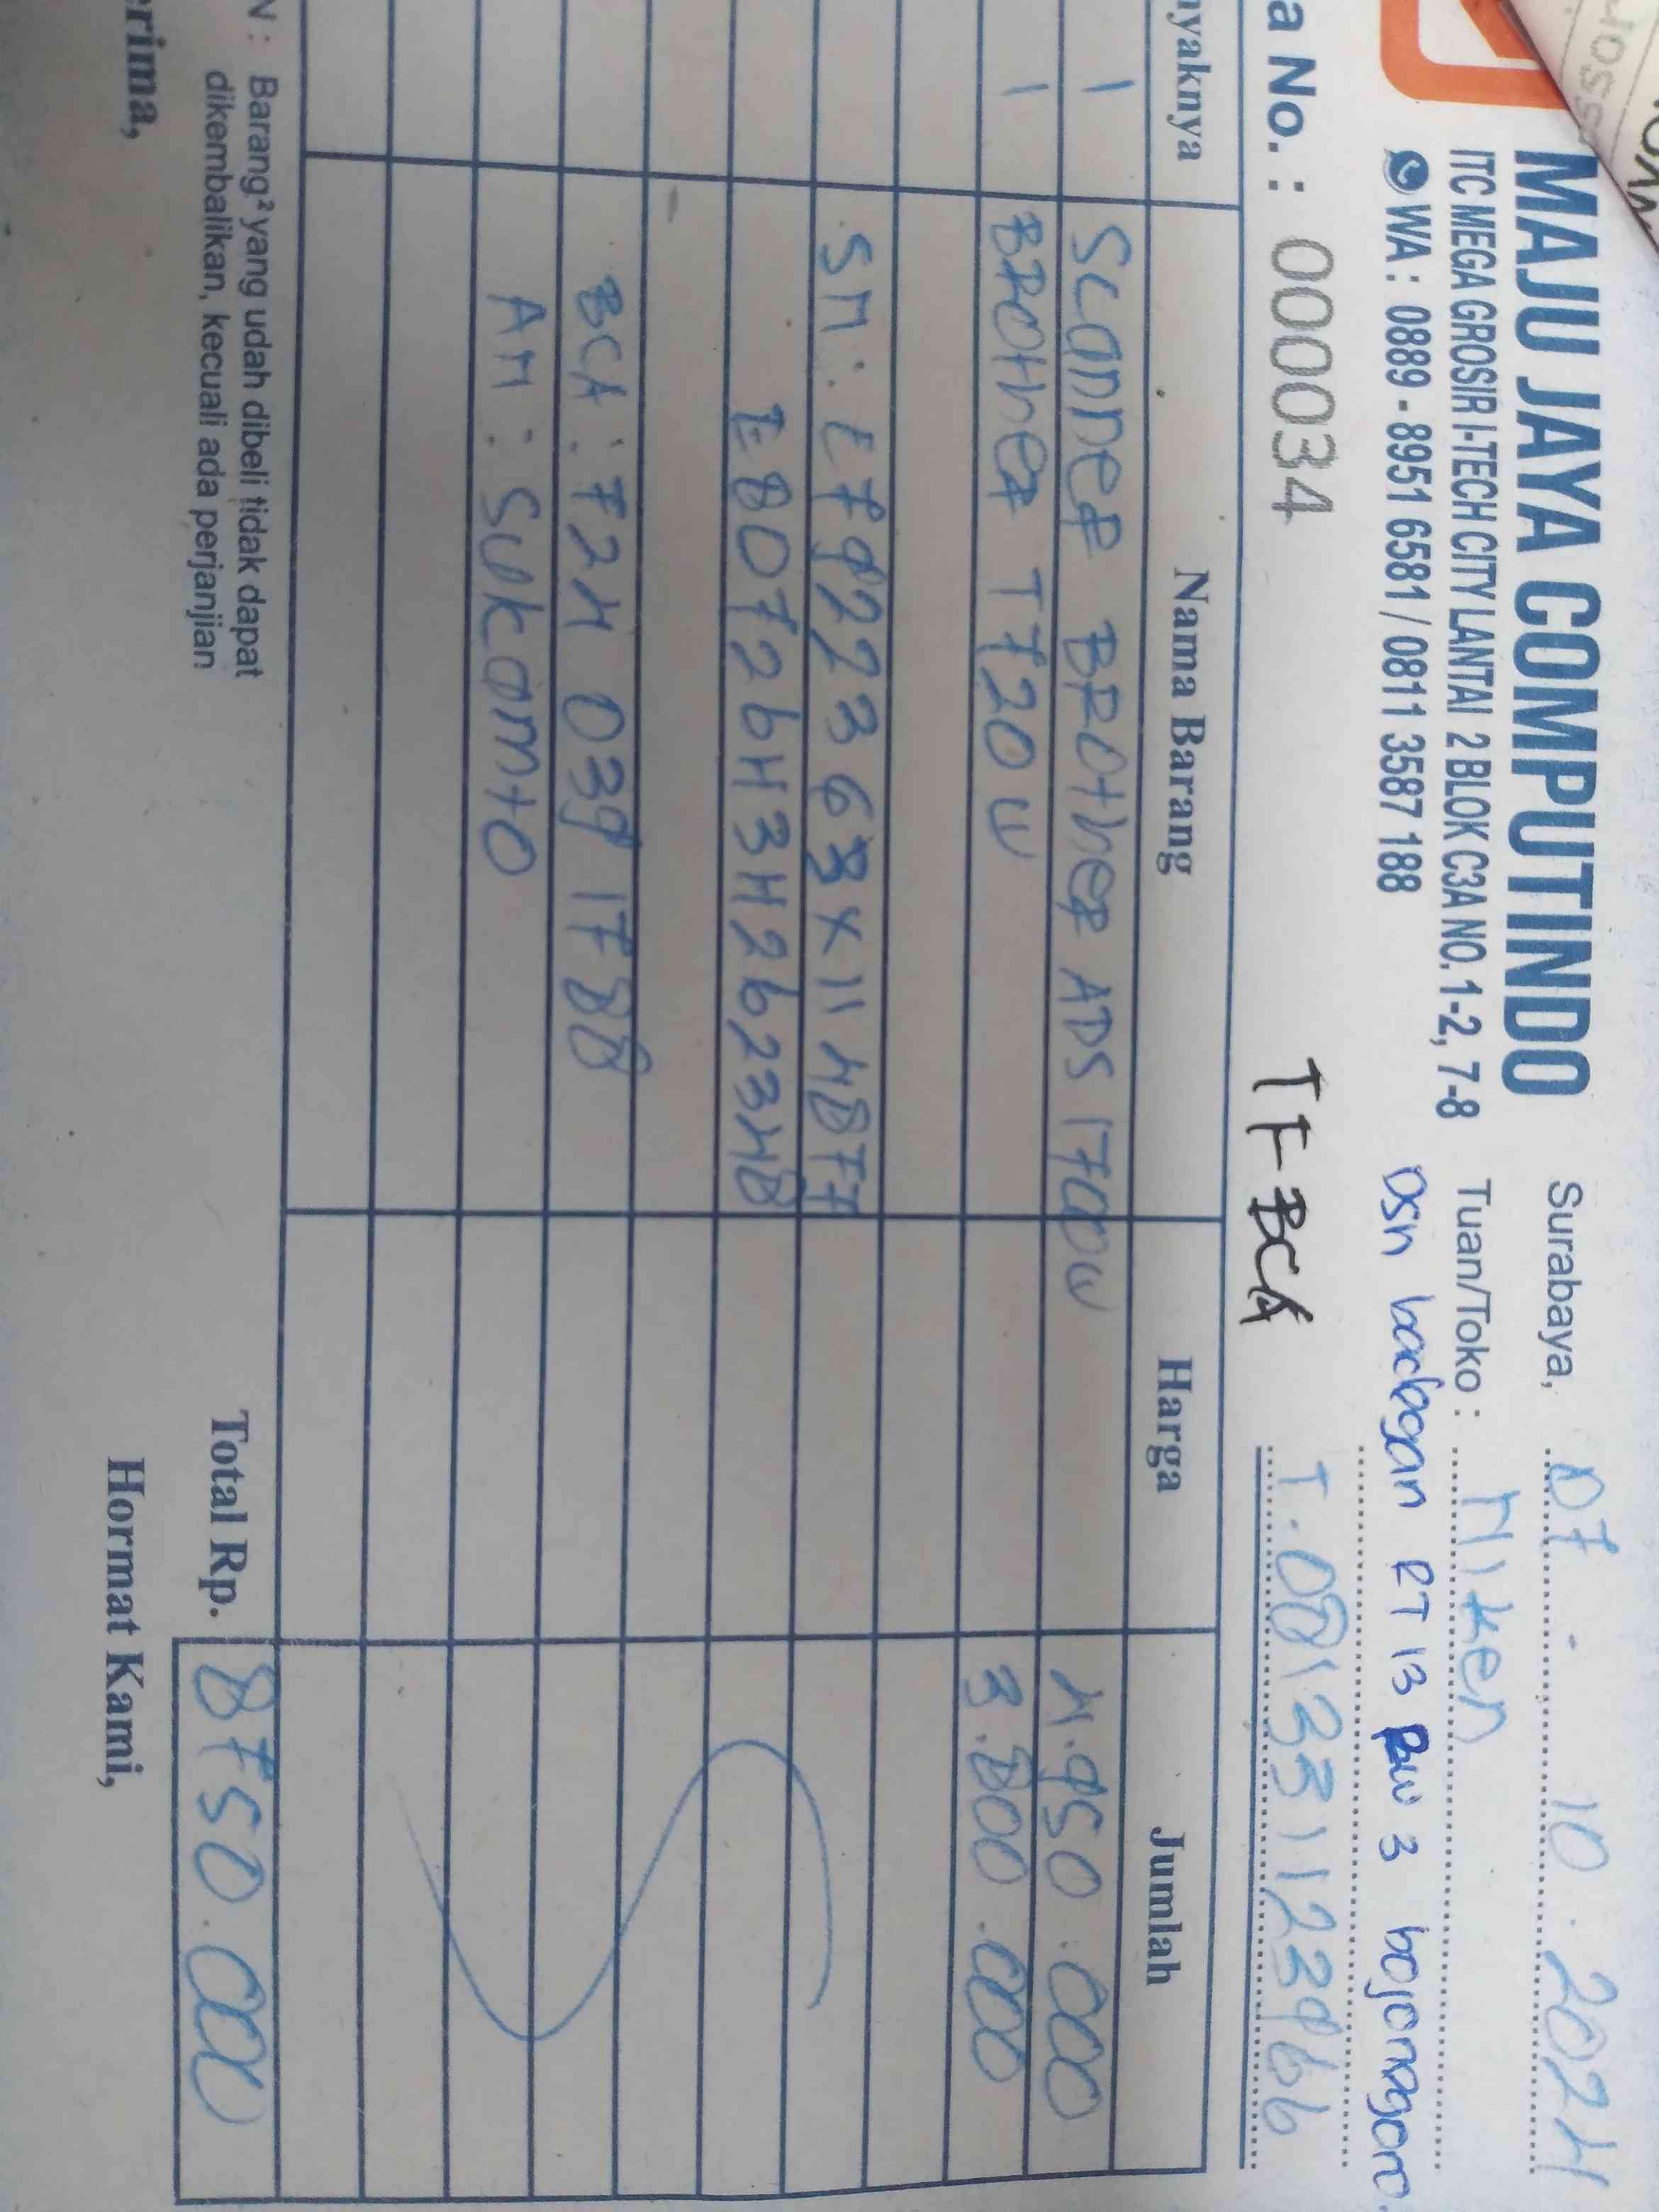 MAJU JAYA COMPUTINDO
ITC MEGA GROSIR I-TECH CITY LANTAI 2 BLOK C3A NO. 1-2, 7-8
WA : 0889 - 8951 6581 / 0811 3587 188
Surabaya, 07 - 10 . 2024
Tuan/Toko : Niken
Dsn RT 13 RW 3 bojonegoro.
T. 081331123966
a No. : 000034
TF BCA
nyaknya Nama Barang Harga Jumlah
1 Scanner Brother ADS 1700W 4.950.000
1 Brother T720W 3.800.000
SN : E80726H3H262348
BCA : 724 039 1788
AN : Sukamto
N : Barang² yang udah dibeli tidak dapat
dikembalikan, kecuali ada perjanjian
Total Rp. 8750.000
erima,
Hormat Kami,